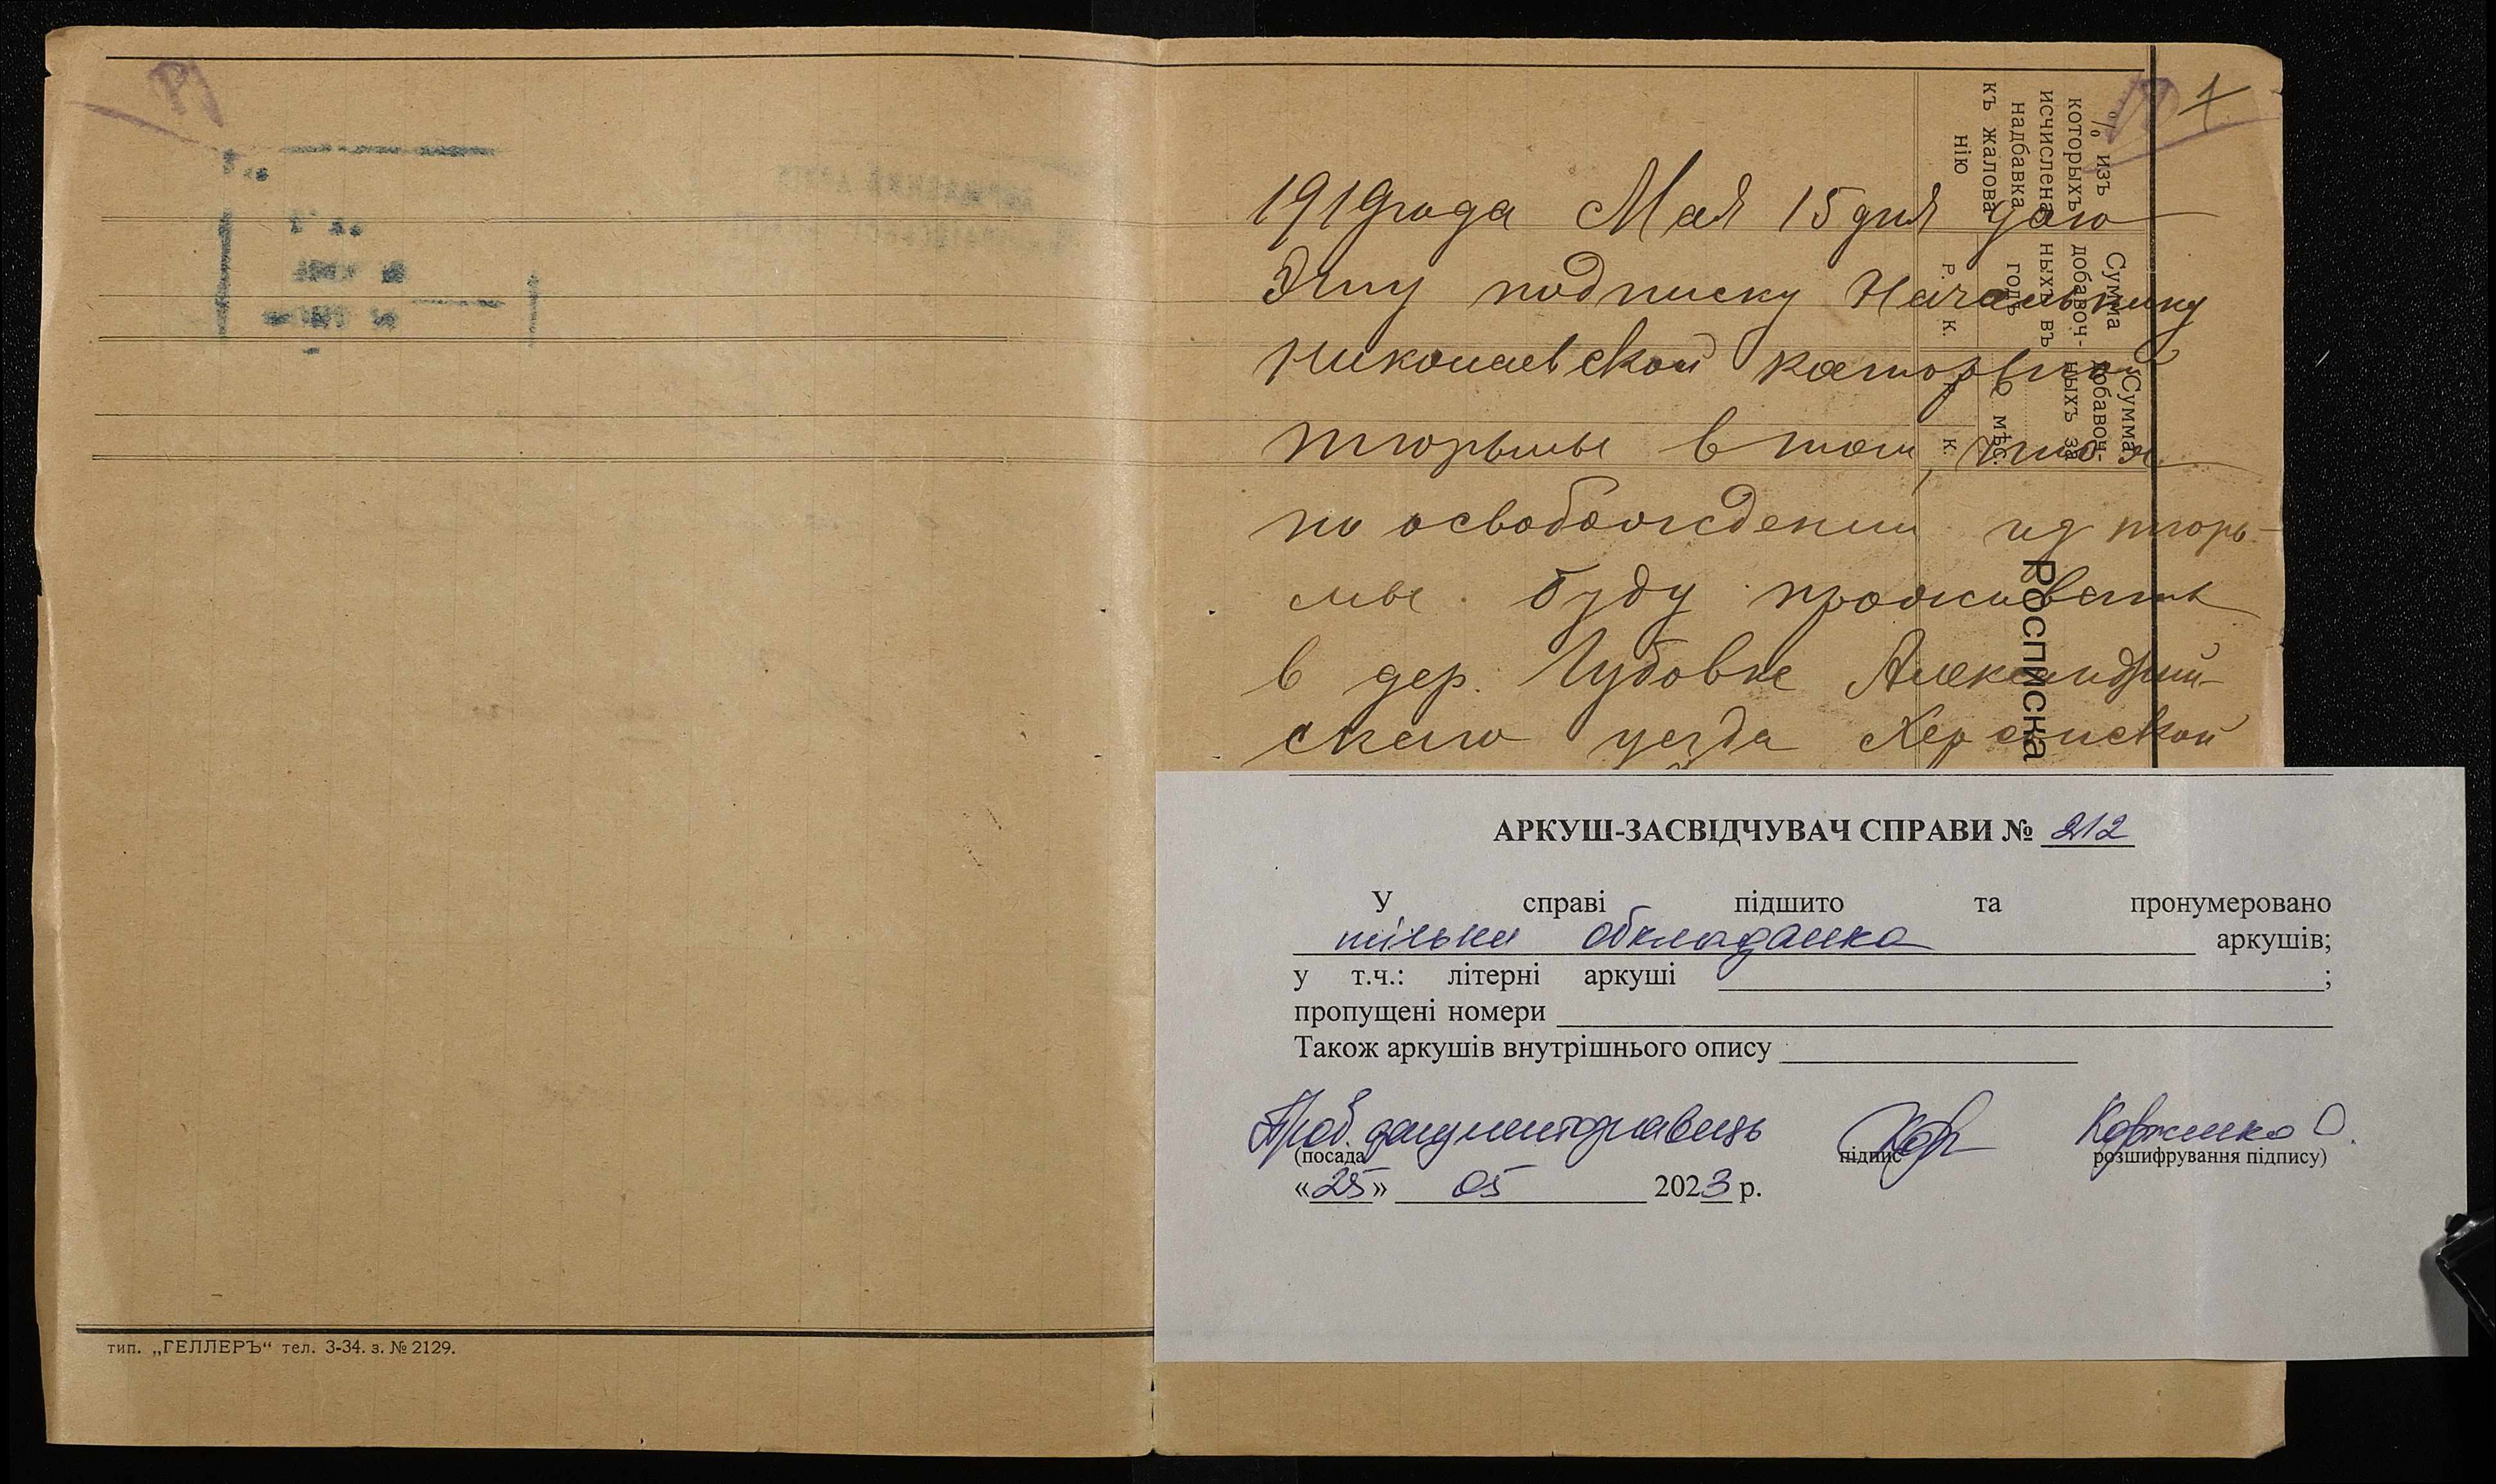 тип. „ГЕЛЛЕРЪ“ тел. 3-34. з. № 2129.
% изъ которыхъ исчислена надбавка къ жалованію
Сумма добавочныхъ въ годъ
Р. К.
Сумма добавочныхъ за мѣс.
Р. К.
Росписка
1919 года Мая 15 дня даю
Эту подписку Начальнику
Николаевской каторжной
тюрьмы в том, что я
по освобождении из тюрь-
мы буду проживать
в дер. Чудовке Александрий-
ского уезда Херсонской
АРКУШ-ЗАСВІДЧУВАЧ СПРАВИ № 212
У справі підшито та пронумеровано
тільки обкладинка аркушів;
у т.ч.: літерні аркуші ;
пропущені номери
Також аркушів внутрішнього опису
Пров. документознавець
(посада підпис розшифрування підпису)
«25» 05 2023 р.